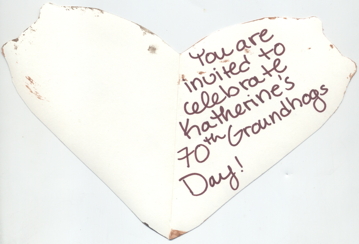 You are
invited to
celebrate
Katherine's
70th Groundhogs
Day!